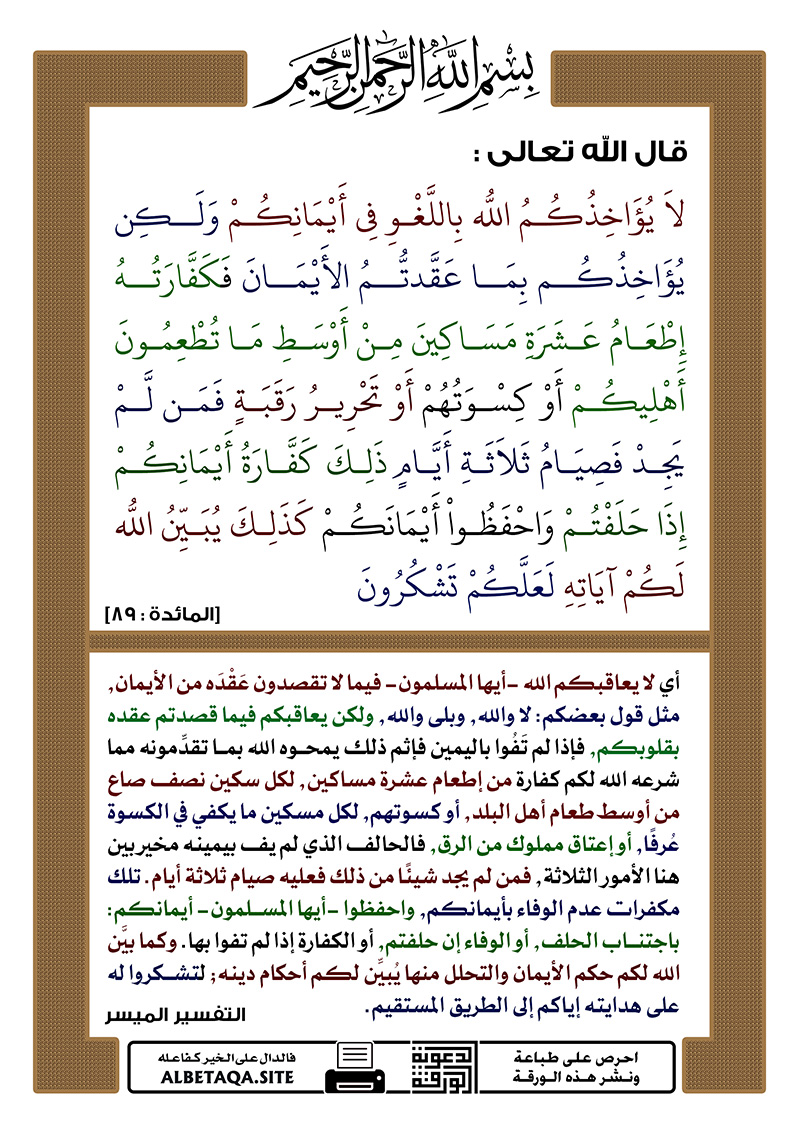 بِسْمِ اللَّهِ الرَّحْمَنِ الرَّحِيمِ
قال الله تعالى :
لاَ يُؤَاخِذُكُمُ اللّه بِاللَّغْوِ فِي أَيْمَانِكُمْ وَلَكِن
يُؤَاخِذُكُم بِمَا عَقَّدتُّمُ الأَيْمَانَ فَكَفَّارَتُهُ
إِطْعَامُ عَشَرَةِ مَسَاكِينَ مِنْ أَوْسَطِ مَا تُطْعِمُونَ
أَهْلِيكُمْ أَوْ كِسْوَتُهُمْ أَوْ تَحْرِيرُ رَقَبَةٍ فَمَن لَّمْ
يَجِدْ فَصِيَامُ ثَلاَثَةِ أَيَّامٍ ذَلِكَ كَفَّارَةُ أَيْمَانِكُمْ
إِذَا حَلَفْتُمْ وَاحْفَظُواْ أَيْمَانَكُمْ كَذَلِكَ يُبَيِّنُ اللّه
لَكُمْ آيَاتِهِ لَعَلَّكُمْ تَشْكُرُونَ
[المائدة : ٨٩]
أي لا يعاقبكم الله -أيها المسلمون- فيما لا تقصدون عَقْدَه من الأيمان,
مثل قول بعضكم: لا والله, وبلى والله, ولكن يعاقبكم فيما قصدتم عقده
بقلوبكم, فإذا لم تَفُوا باليمين فإثم ذلك يمحوه الله بما تقدِّمونه مما
شرعه الله لكم كفارة من إطعام عشرة مساكين, لكل سكين نصف صاع
من أوسط طعام أهل البلد, أو كسوتهم, لكل مسكين ما يكفي في الكسوة
عُرفًا, أو إعتاق مملوك من الرق, فالحالف الذي لم يف بيمينه مخيربين
هنا الأمور الثلاثة, فمن لم يجد شيئًا من ذلك فعليه صيام ثلاثة أيام. تلك
مكفرات عدم الوفاء بأيمانكم, واحفظوا -أيها المسلمون- أيمانكم:
باجتناب الحلف, أو الوفاء إن حلفتم, أو الكفارة إذا لم تفوا بها. وكما بيَّن
الله لكم حكم الأيمان والتحلل منها يُبيِّن لكم أحكام دينه; لتشكروا له
على هدايته إياكم إلى الطريق المستقيم.
التفسير الميسر
احرص على طباعة
ونشر هذه الورقة
الورقة الدعوية
فالدال على الخير كفاعله
ALBETAQA.SITE